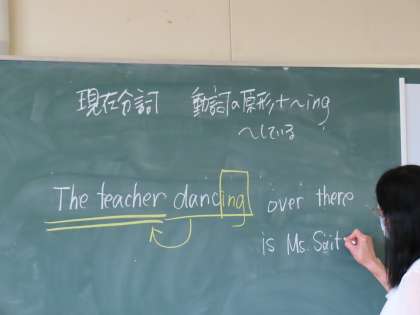 現在分詞 動詞の原形+~ing
~している
The teacher dancing over there
is Ms. Sait